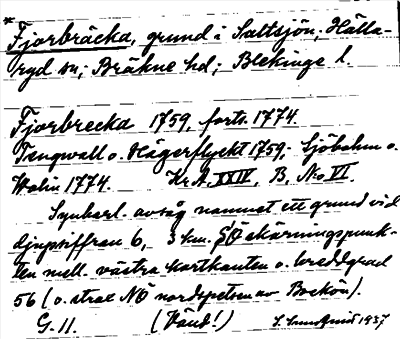 *Fjorbräcka, grund i Saltsjön; Hälla-
ryd sn; Bräkne hd; Blekinge l.
Fjorbrecka 1759, forts. 1774.
Tengwall o. Hägerflycht 1759; Sjöbohm o.
Wolin 1774. Kr.A. XXIV, B, No VI.
Synbarl. avsåg namnet ett grund vid
djupsiffran 6, 3 km. SÖ skärningspunk-
ten mell. västra kartkanten o. breddgrad
56 (o. strax NÖ nordspetsen av Bockön).
G. 11. (Vänd!) S. Sundquist 1937